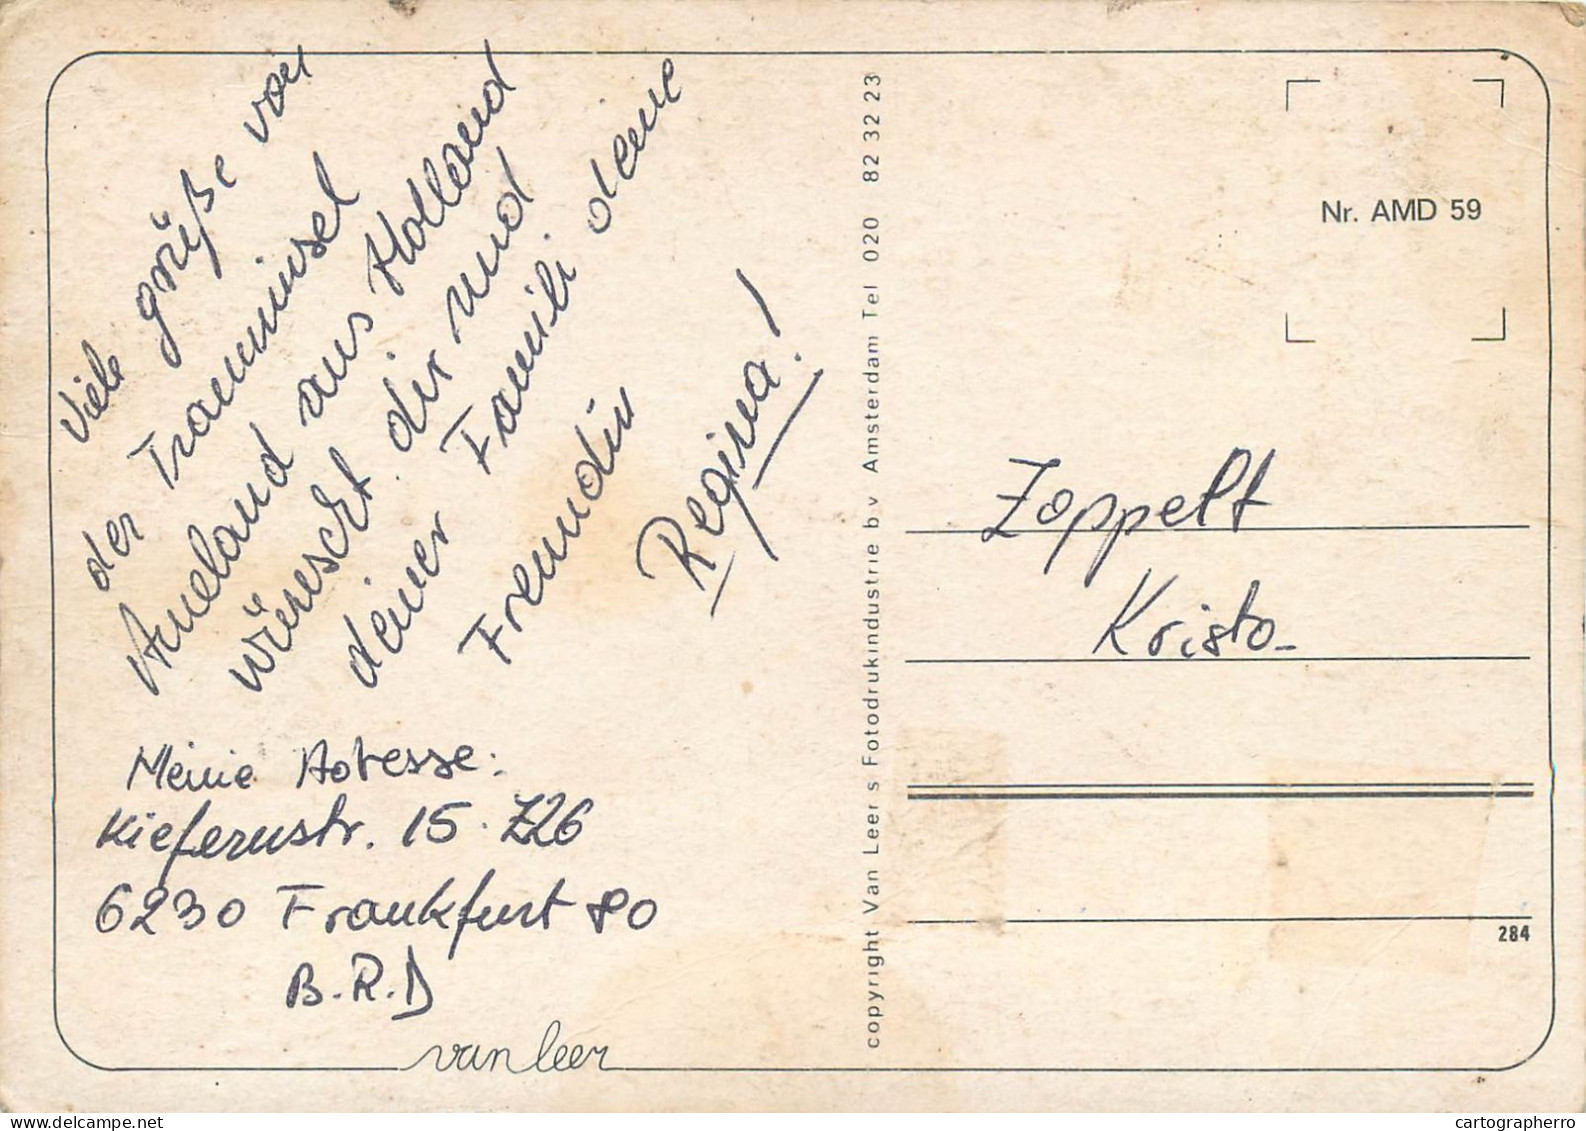 Viele grüße von
der Trauminsel
Ameland aus Holland
wünscht dir und
deiner Famili deine
Freundin
Regina!
Meine Adresse:
Kiefernstr. 15. Z26
6230 Frankfurt 80
B.R.D
van leer
copyright Van Leer s Fotodrukindustrie b v Amsterdam Tel 020 82 32 23
Nr. AMD 59
Zoppelt
Kristo-
284
delcampe.net
cartographerro